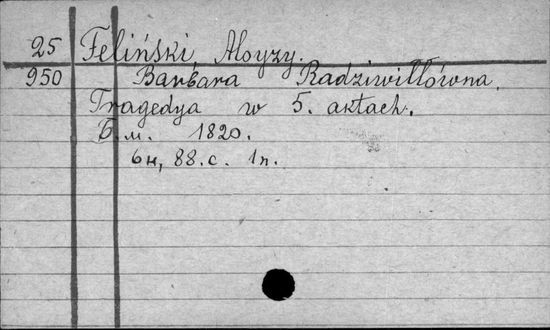 25 Feliński, Aloyzy.
950 Barbara Radziwiłłówna.
Tragedya w 5. aktach.
Б.м. 1820.
6н, 88.с. 1п.